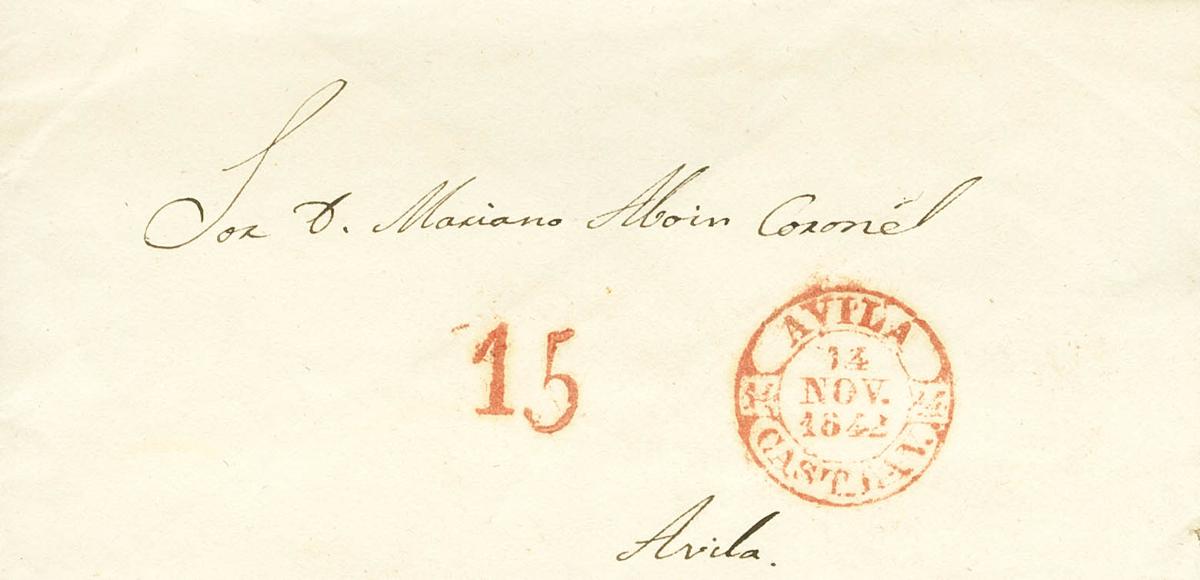 Sor D. Mariano Aboin Coronel
15
AVILA
14
NOV.
1842
CAST. LA V.
Avila.